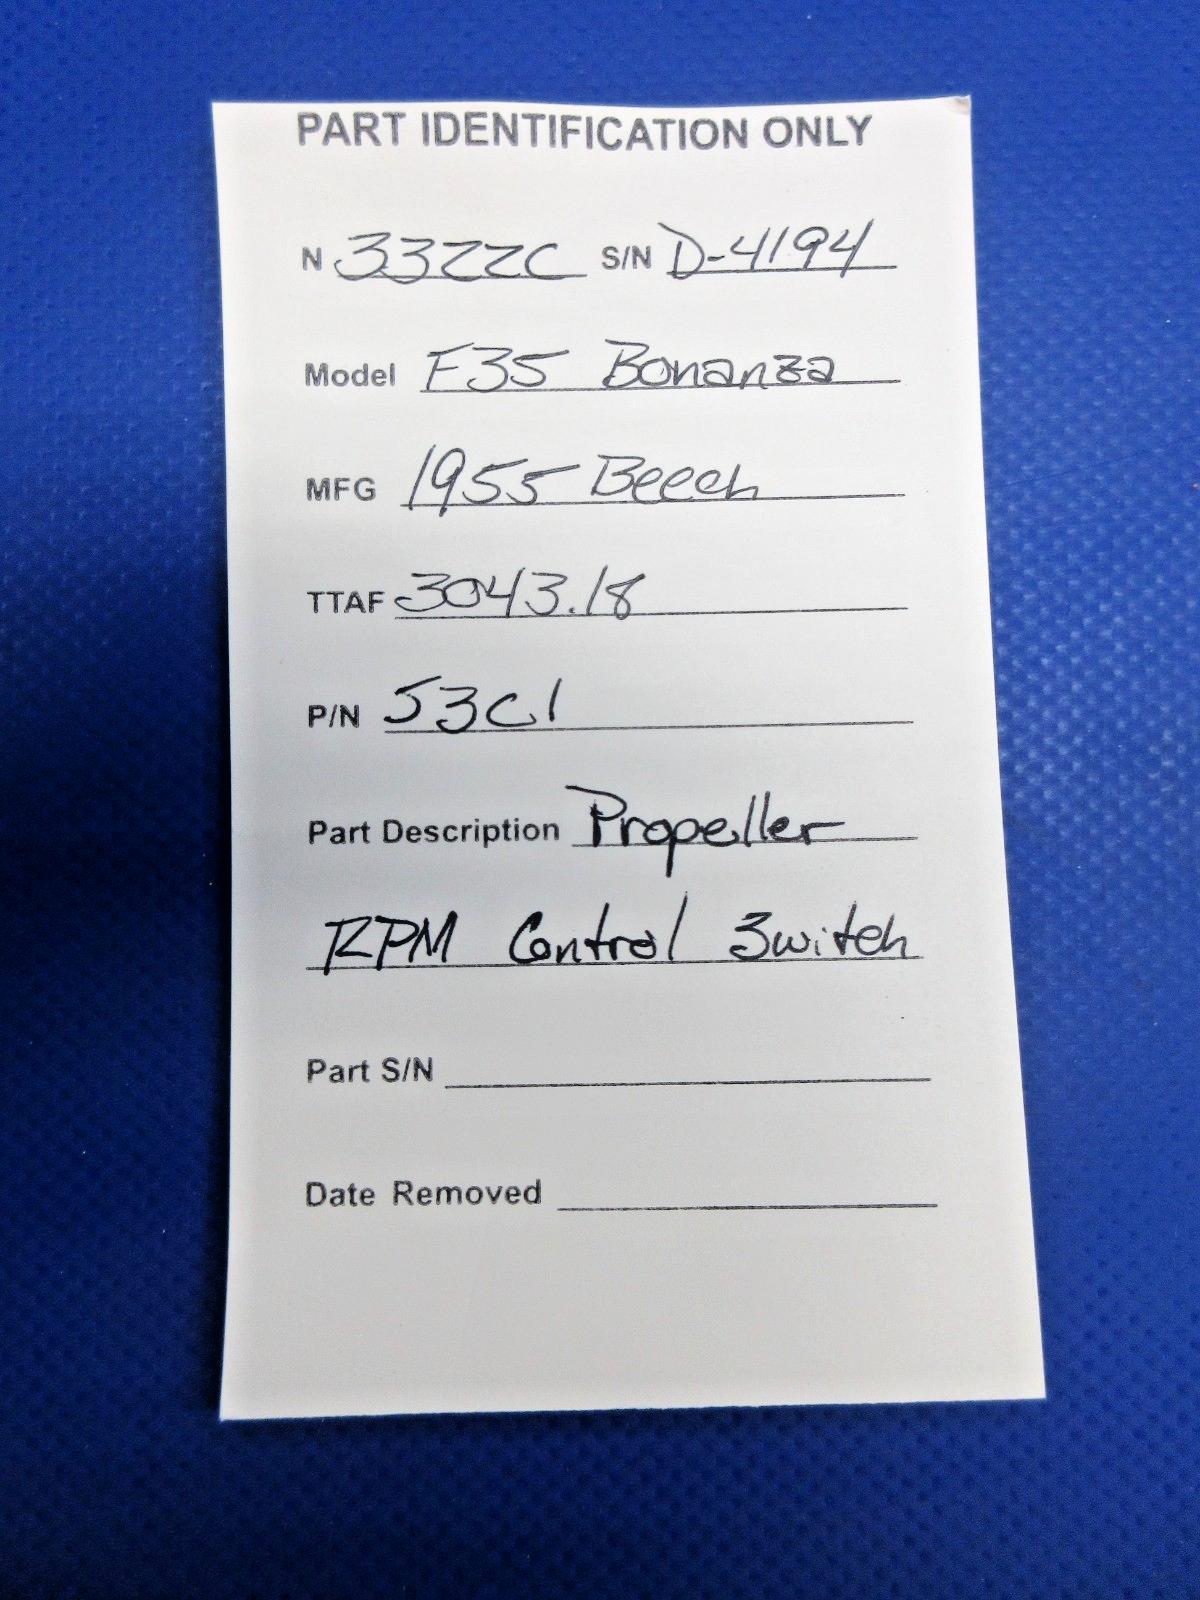 PART IDENTIFICATION ONLY
N 3322C S/N D-4194
Model F35 Bonanza
MFG 1955 Beech
TTAF 3043.18
P/N 53C1
Part Description Propeller
RPM Control Switch
Part S/N
Date Removed